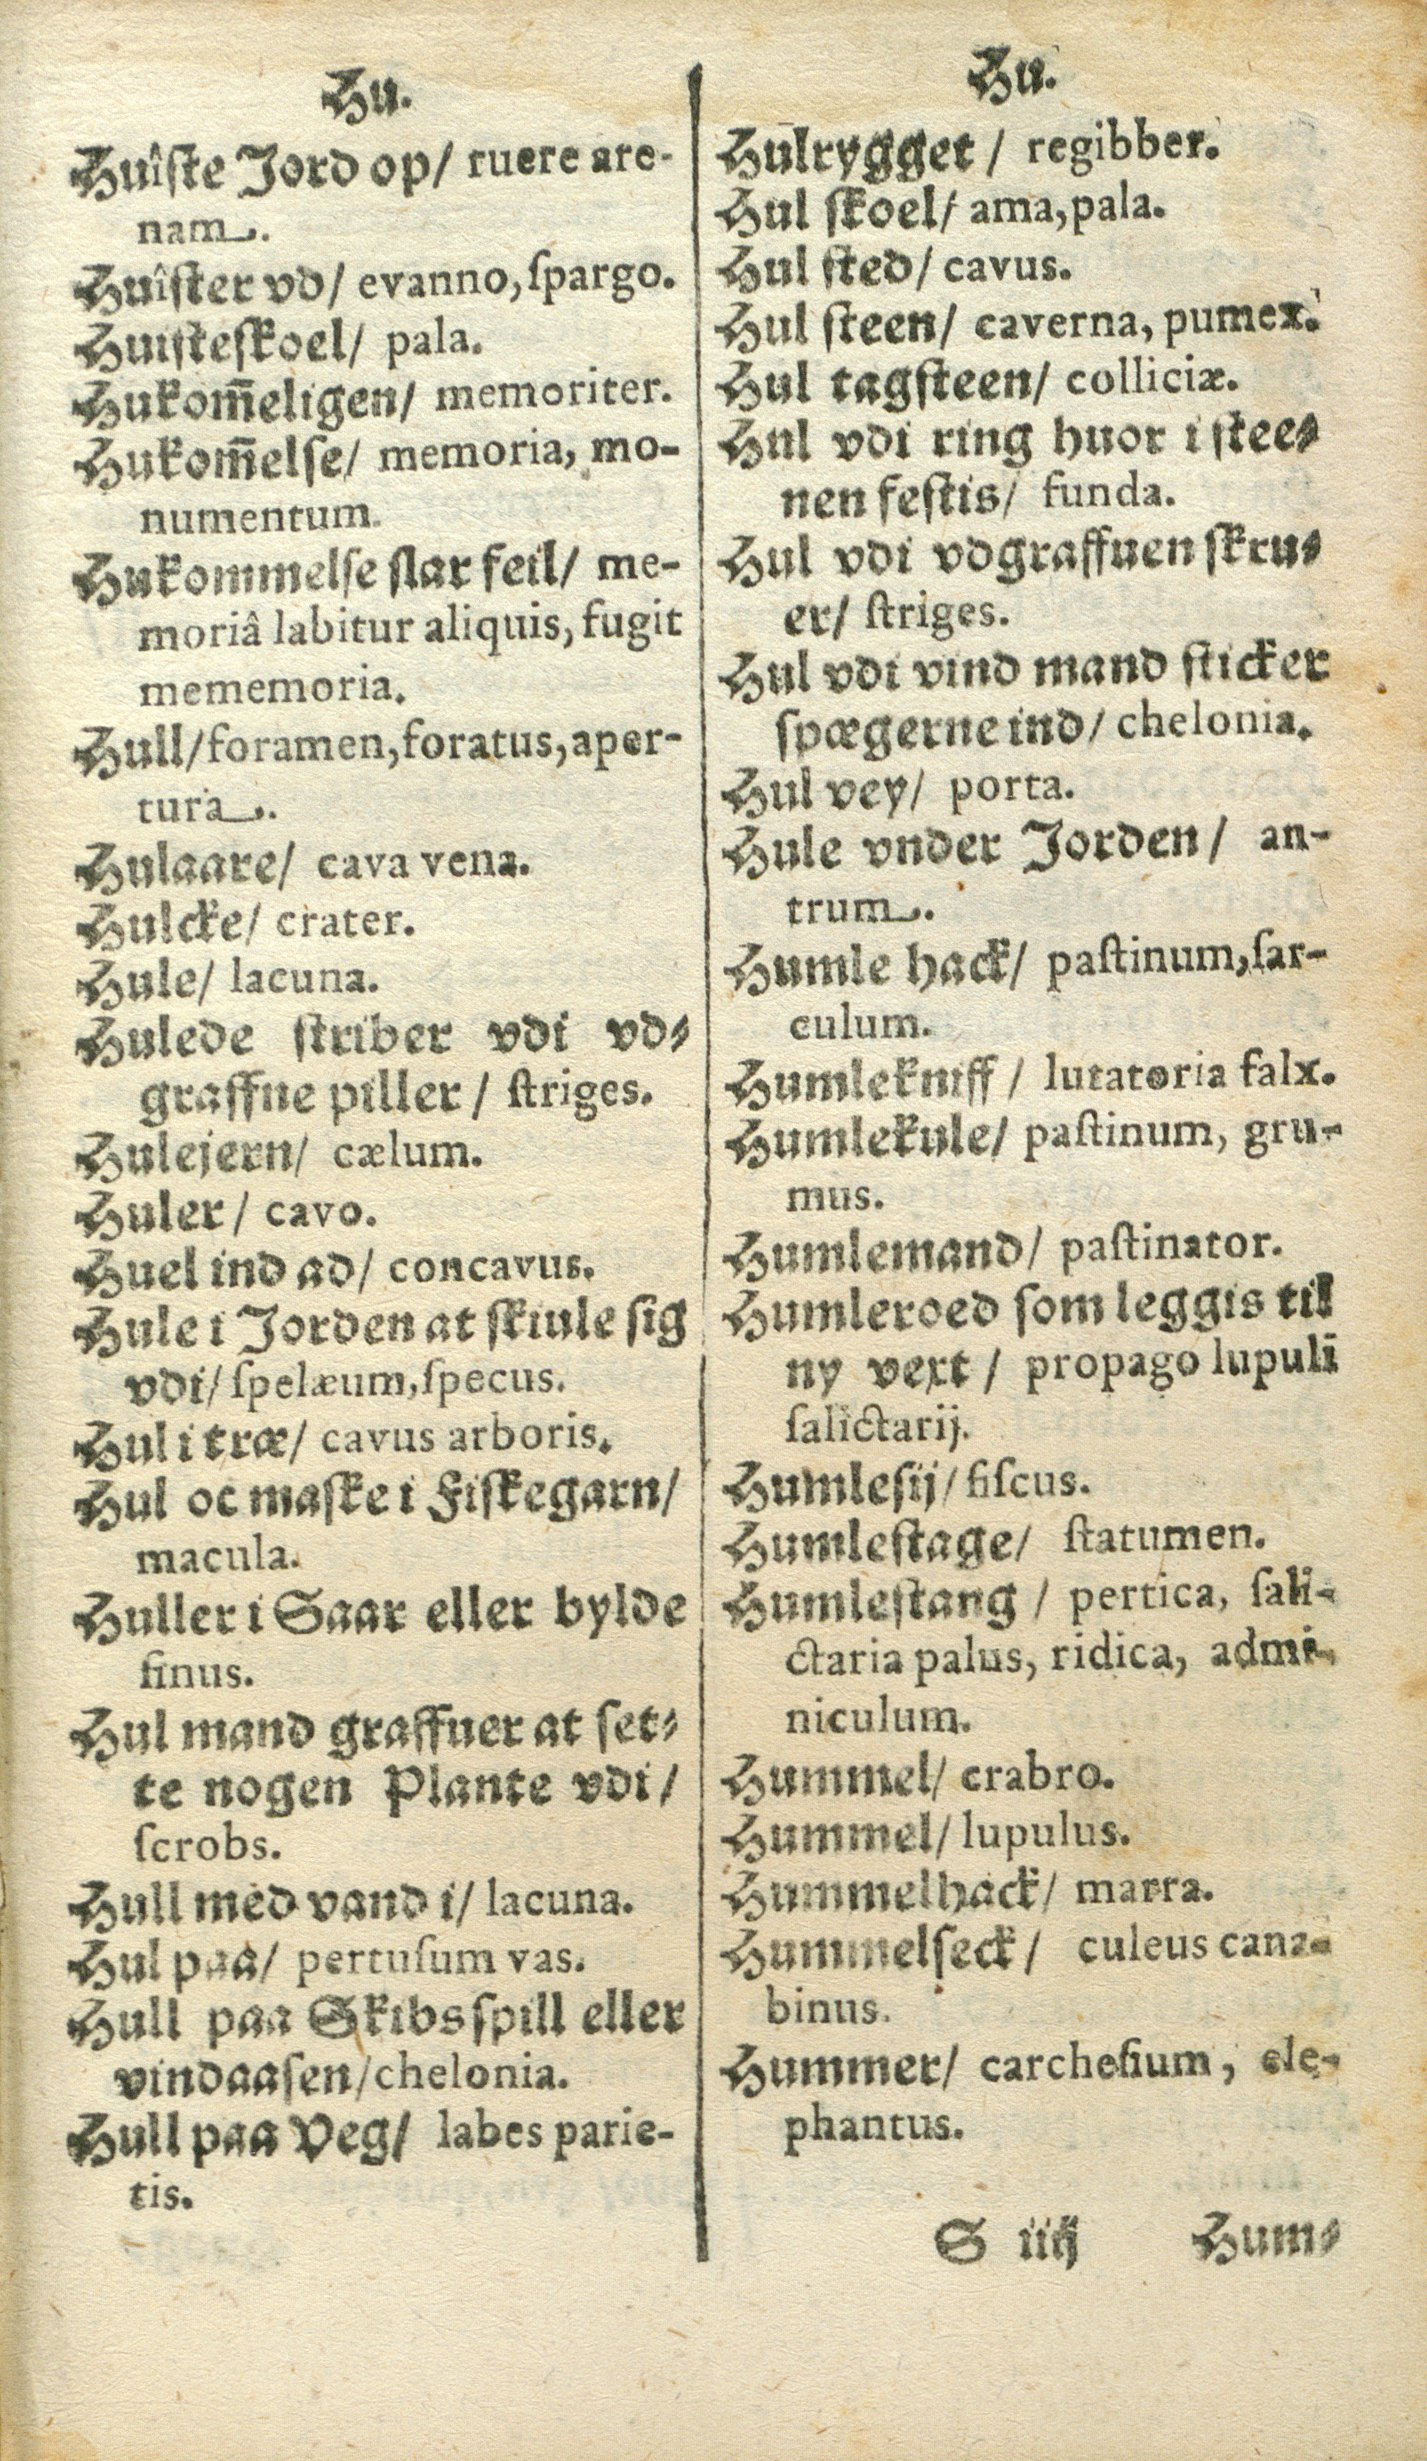 Hu.
Huîſte Jord op/ ruere are-
nam.
Huîſter vd/ evanno, ſpargo.
Huiſteſkoel/ pala.
Hukom̅eligen/ memoriter.
Hukom̅elſe/ memoria, mo-
numentum.
Hukommelſe ſlar feil/ me-
moriâ labitur aliquis, fugit
mememoria.
Hull/ foramen, foratus, aper-
tura.
Hulaare/ cava vena.
Hulcke/ crater.
Hule/ lacuna.
Hulede ſtriber vdi vd⸗
graffne piller/ ſtriges.
Hulejern/ cælum.
Huler/ cavo.
Huel ind ad/ concavus.
Hule i Jorden at ſkiule ſig
vdi/ ſpelæum, ſpecus.
Hul i træ/ cavus arboris.
Hul oc maſke i Fiſkegarn/
macula.
Huller i Saar eller bylde
ſinus.
Hul mand graffuer at ſet⸗
te nogen Plante vdi/
ſcrobs.
Hull med vand i/ lacuna.
Hul paa/ pertuſum vas.
Hull paa Skibs ſpill eller
vindaaſen/ chelonia.
Hull paa Veg/ labes parie-
tis.
Hu.
Hulrygget/ regibber.
Hul ſkoel/ ama, pala.
Hul ſted/ cavus.
Hul ſteen/ caverna, pumex.
Hul tagſteen/ colliciæ.
Hul vdi ring huor i ſtee⸗
nen feſtis/ funda.
Hul vdi vdgraffuen ſkru⸗
er/ ſtriges.
Hul vdi vind mand ſticker
ſpægerne ind/ chelonia.
Hul vey/ porta.
Hule vnder Jorden/ an-
trum.
Humle hack/ paſtinum, ſar-
culum.
Humlekniff/ lutatoria falx.
Humlekule/ paſtinum, gru-
mus.
Humlemand/ paſtinator.
Humleroed ſom leggis til
ny vext/ propago lupuli
ſalictarij.
Humleſij/ fiſcus.
Humleſtage/ ſtatumen.
Humleſtang/ pertica, ſali-
ctaria palus, ridica, admi-
niculum.
Hummel/ crabro.
Hummel/ lupulus.
Hummelhack/ marra.
Hummelſeck/ culeus cana-
binus.
Hummer/ carcheſium, ele-
phantus.
S iiij Hum⸗